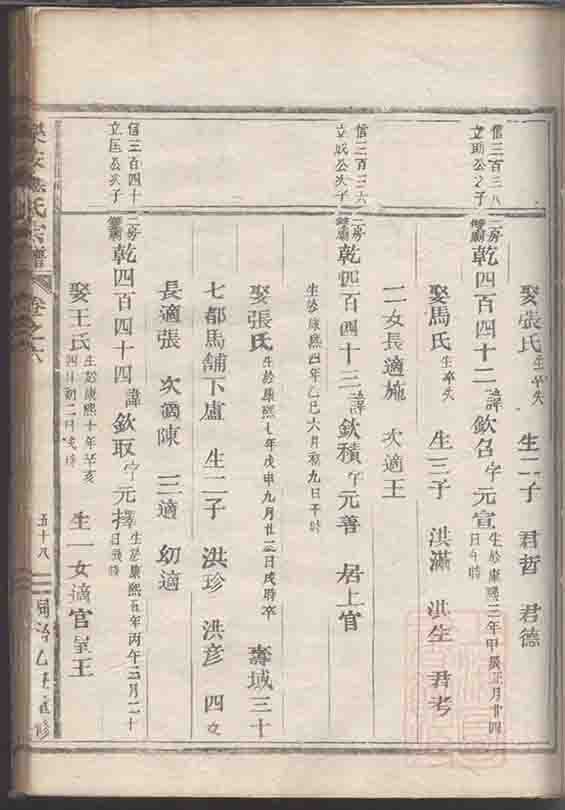 娶張氏 生卒失 生二子 君哲 君德
信三百三八
立助公之子
二房
乾四百四十二 諱欽名字元宣 生於康熙三年甲辰正月廿四
日午時
娶馬氏 生卒失 生三子 洪滿 洪生 君考
二女長適施 次適王
信三百三六
立成公次子
二房
乾四百四十三 諱欽積字元善 居上官
生於康熙四年乙巳六月初九日午時
娶張氏 生於康熙七年戊申九月廿三日戌時卒 壽域三十
七都馬舖下盧 生二子 洪珍 洪彥 四女
長適張 次適陳 三適 幼適
信三百四十
立匡公次子
二房
乾四百四十四 諱欽取字元擇 生於康熙五年丙午三月二十
日 時
娶王氏 生於康熙十年辛亥
四月初二日亥時
生一女適官 王
樂安 氏宗譜 卷之六 五十八 同治乙丑 修